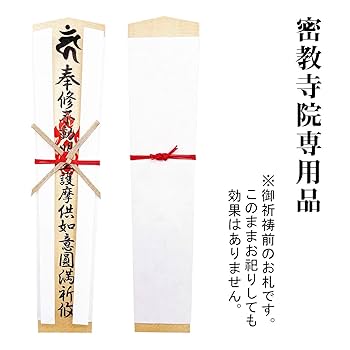 密教寺院専用品
※御祈祷前のお札です。
このままお祀りしても
効果はありません。
奉修不動護摩供如意圓満祈攸